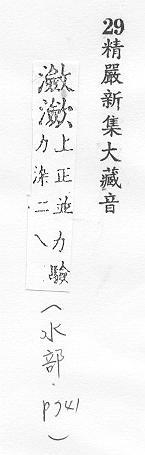 29精嚴新集大藏音
瀲㶑
上正並力驗
力染二
（水部．P941）